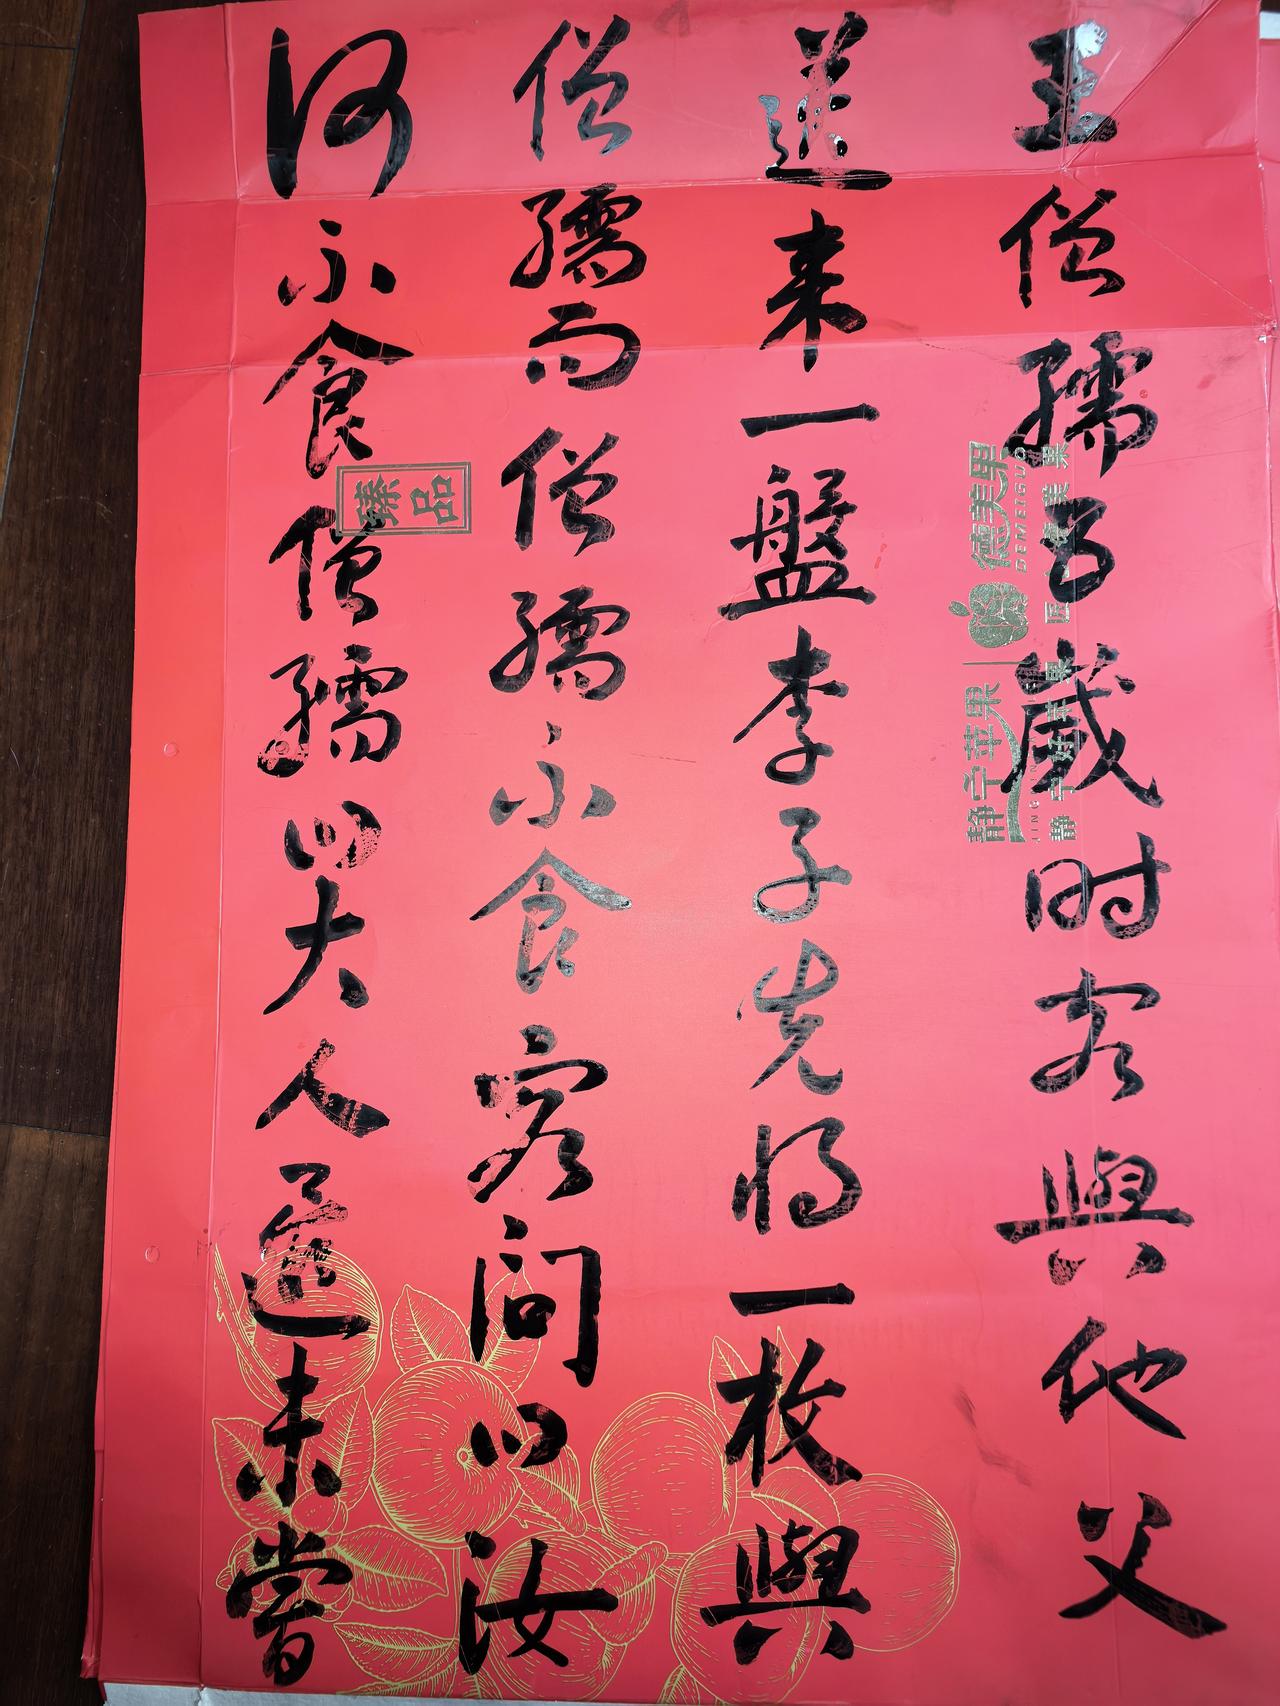 王僧孺五歲时客與他父
送来一盤李子先将一枚與
僧孺而僧孺不食客问曰汝
何不食僧孺曰大人還未嘗
静宁苹果
德美果
DEMEIGUO
静宁好苹果
臻品